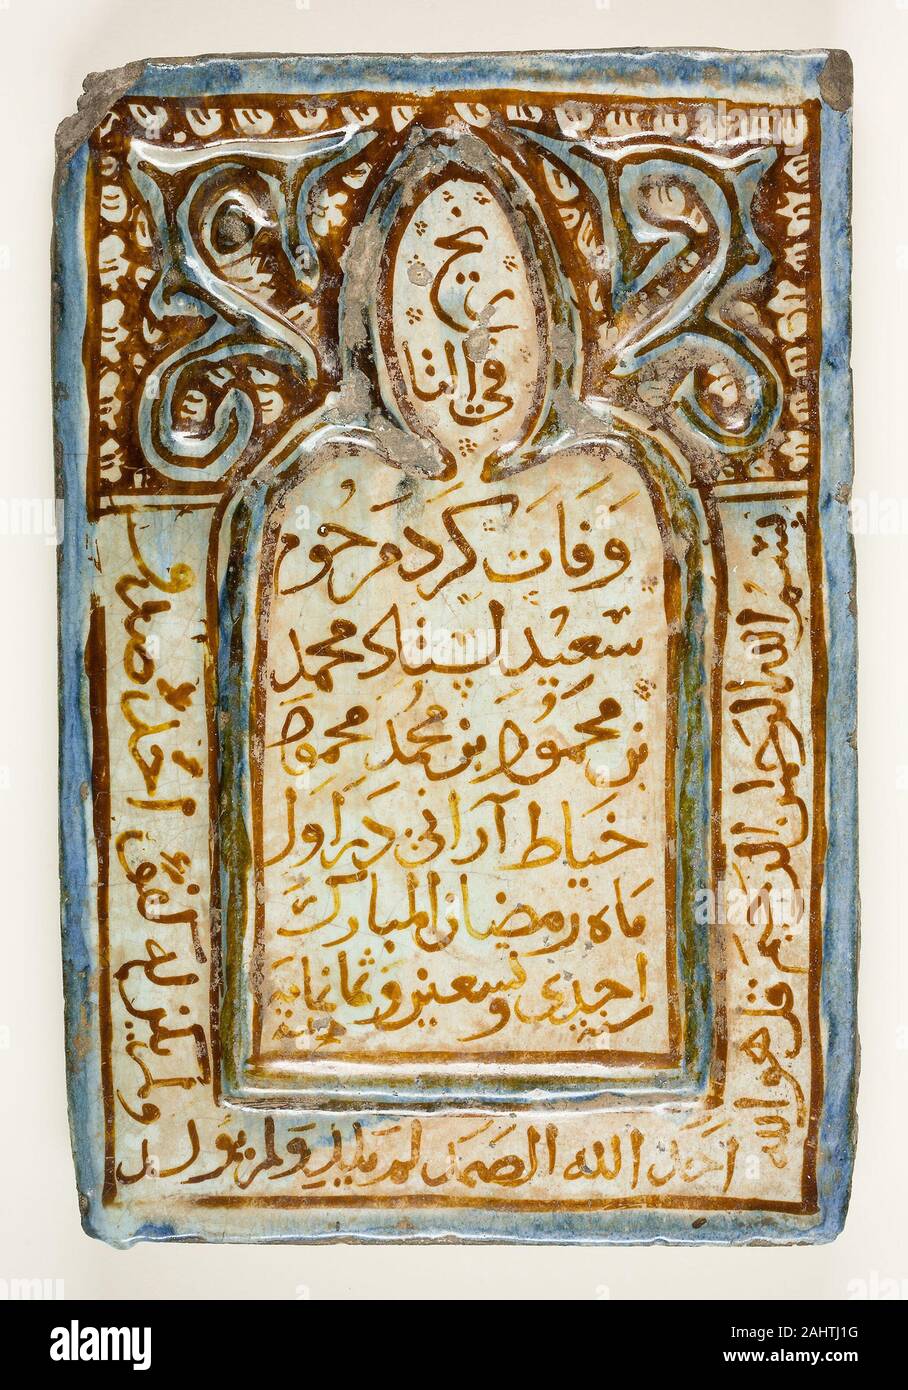 تاريخ
في التا
وَفَاتَ كَرد مَرحُوم
سَعِيد استاد محمد
بن محمُود بن محمد محمود
خياط آرانی در اول
ماه رمضان المبارك
سنة احدی و تسعين و ثمانماية
بسم الله الرحمن الرحيم قل هو الله
احد الله الصمد لم يلد ولم يولد
ولم يكن له كفوا احد صدق
alamy
alamy
Image ID: 2AHTJ1G
www.alamy.com